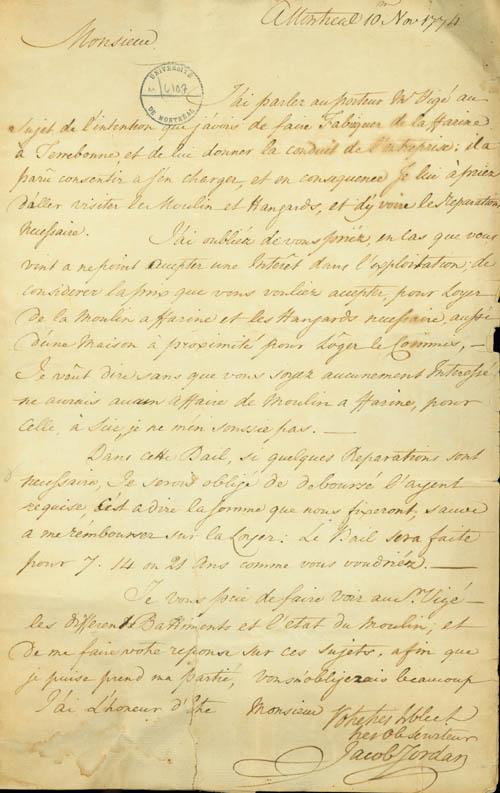 A Montreal 10 Nov 1774
Monsieur
UNIVERSITÉ
DE MONTREAL
J'ai parler au porteur Mr Vigé au
Sujet de l'intention que j'avois de faire Fabiquer de la ffarine
à Terrebonne, et de lui donner la conduit de l'entreprise; il a
parû consentir a s'en charger, et en consequence Je lui à priéz
d'aller visiter les Moulin et Hangards, et d'y voire les Reparation
necessaire.
J'ai oubliéz de vous priéz, en cas que vous
vint a ne point accepter une Interêt dans l'exploitation, de
considerer la prix que vous vouliez accepter, pour Loyer
de la Moulin a ffarine et les Hangards necessaire, aussi
d'une Maison à proximité pour Lôger le Commes, —
Je veût dire sans que vous soyez aucunement Interessé
ne aurais aucun affaire de Moulin a ffarine, pour
Celle à Sçie, je ne m'en soussie pas. —
Dans cette Bail, si quelques Reparations sont
necessaire, Je serai obligé de deboursé l'argent
requise c'ést a dire la somme que nous fixeront, sauve
a me rembourser sur la Loyer: Le Bail sera faite
pour 7. 14 ou 21 Ans comme vous voudriéz. —
Je vous prie de faire voir au Sr. Vigé
les differents Battiments et l'état du Moulin; et
de me faire votre reponse sur ces sujets, afin que
je puise prend ma partié, vous m'oblijerais beaucoup
J'ai L'honeur d'Etre Monsieur
Votre tres
tres Ob Serviteur
Jacob Jordan